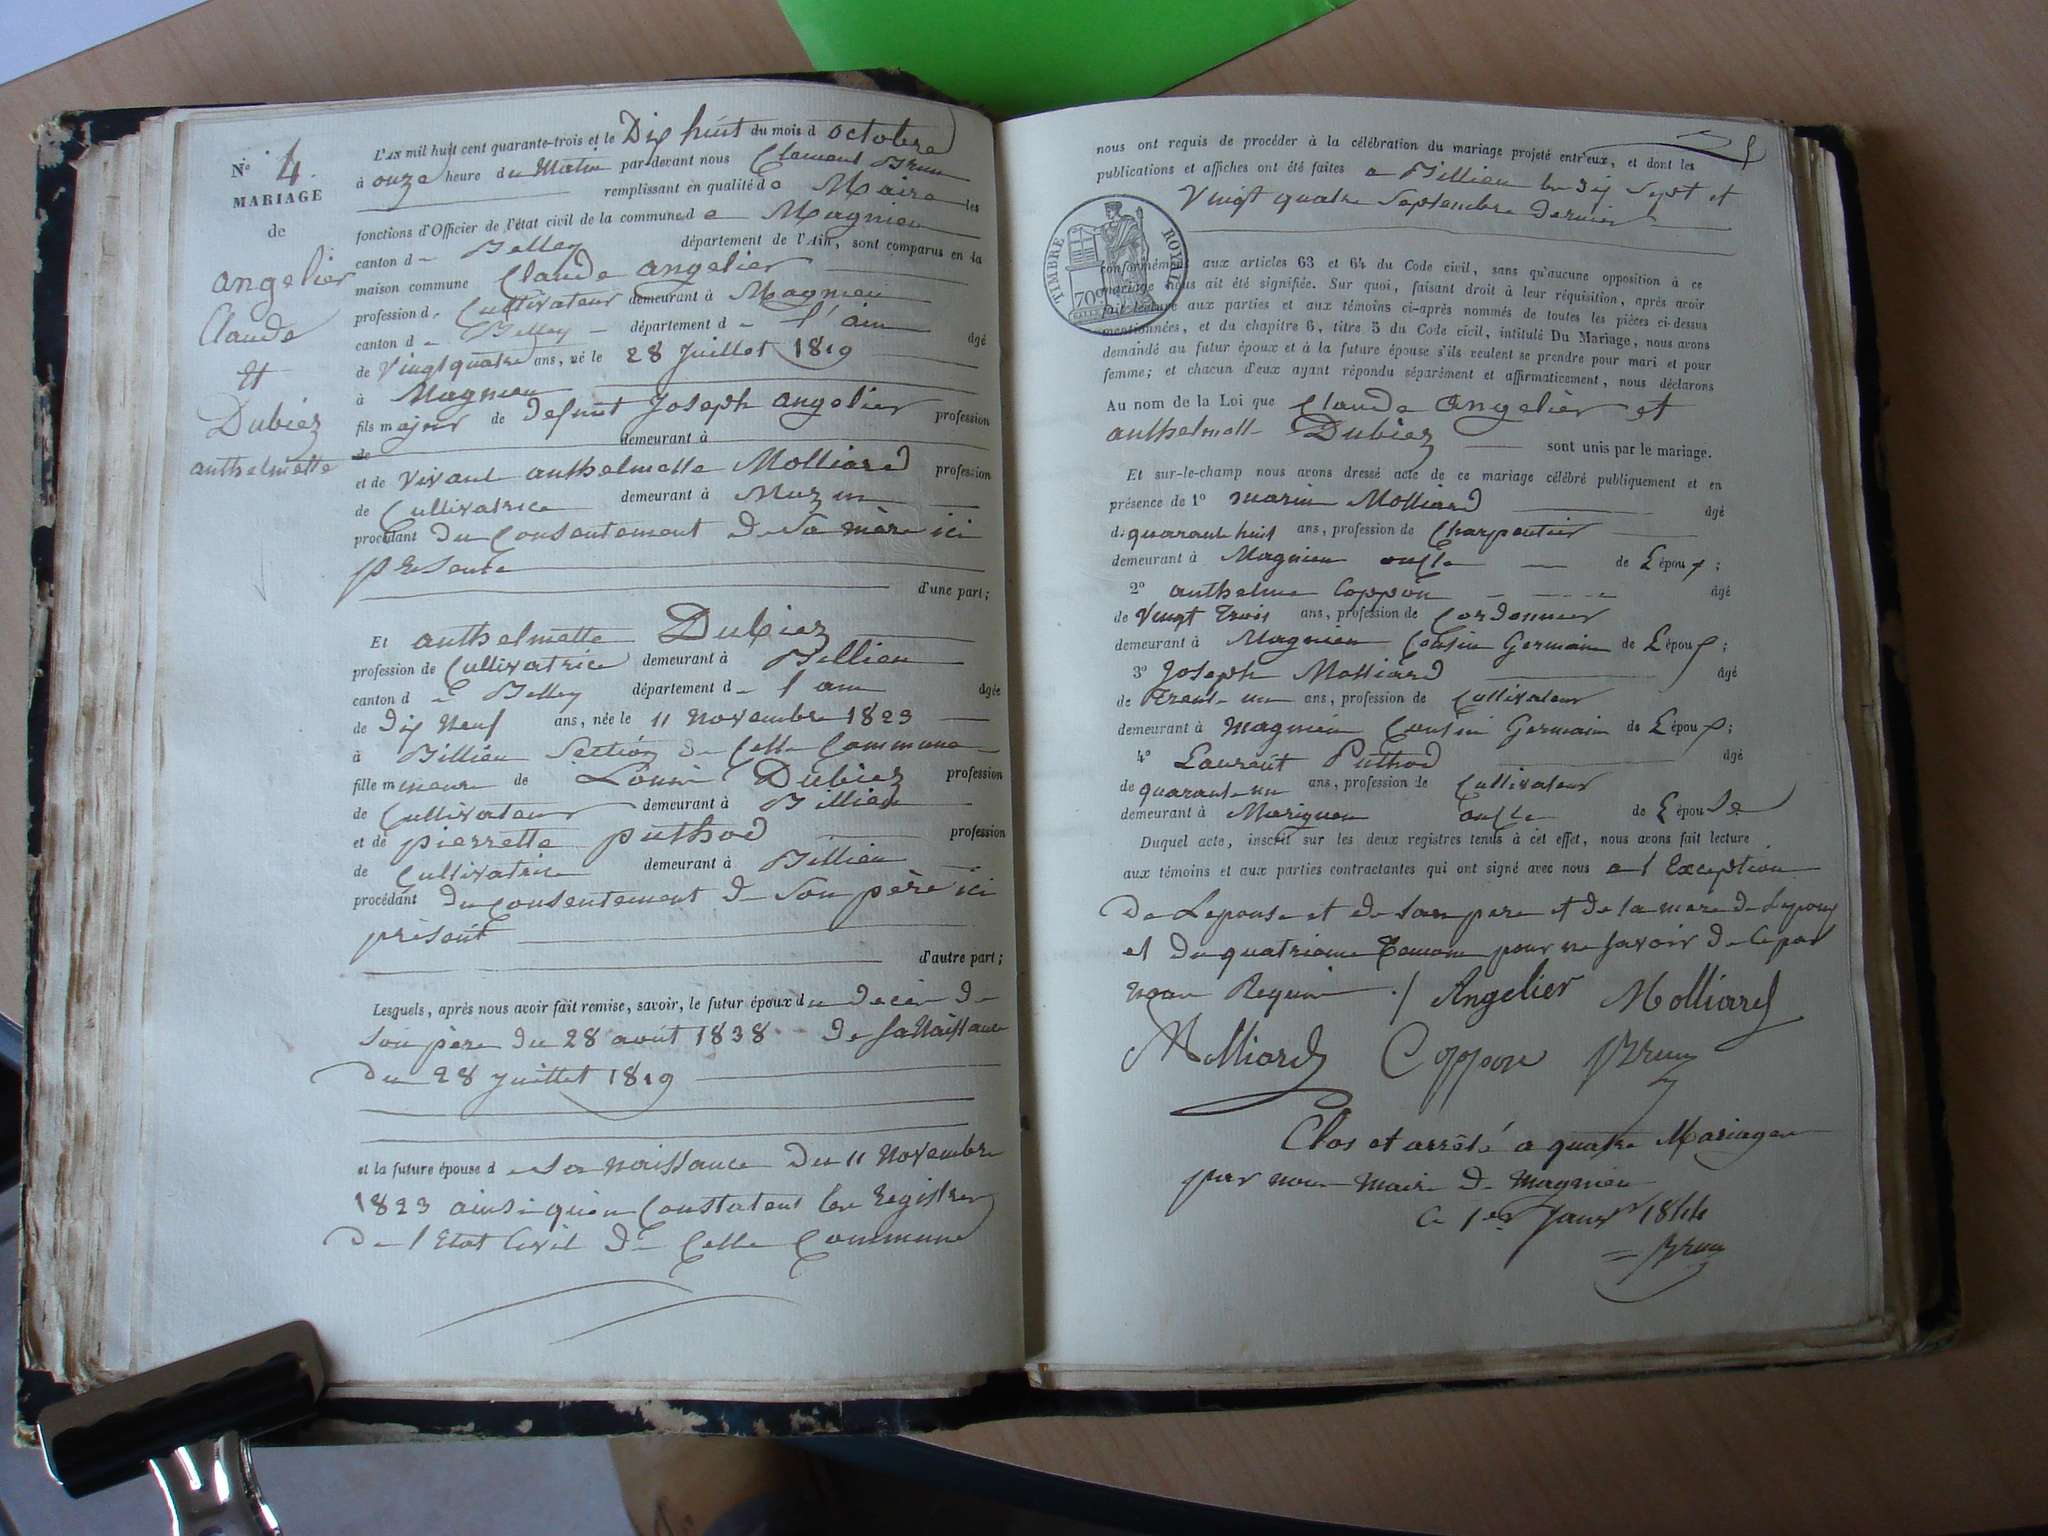 N° 4.
MARIAGE
de
angelier
Claude
et
Dubiez
anthelmette
L'AN mil huit cent quarante-trois et le Dix huit du mois d octobre
à onze heure du Matin par-devant nous Clement Brun
remplissant en qualité de Maire les
fonctions d'Officier de l'état civil de la commune de Magnieu
canton de Belley département de l'Ain, sont comparus en la
maison commune Claude angelier
profession de Cultivateur demeurant à Magnieu
canton de Belley département de l'ain âgé
de Vingt quatre ans, né le 28 Juillet 1819
à Magnieu
fils majeur de defunt Joseph angelier profession
de demeurant à
et de vivant anthelmette Molliard profession
de Cultivatrice demeurant à Muzin
procédant du Consentement de Sa mère ici
présente
d'une part;
Et anthelmette Dubiez
profession de Cultivatrice demeurant à Billieu
canton de Belley département de l'ain âgée
de Dix Neuf ans, née le 11 Novembre 1823
à Billieu Section de Cette Commune
fille mineure de Louis Dubiez profession
de Cultivateur demeurant à Billieu
et de pierrette puthod profession
de Cultivatrice demeurant à Billieu
procédant du Consentement de Son père ici
présent
d'autre part;
Lesquels, après nous avoir fait remise, savoir, le futur époux du decès de
Son père du 28 août 1838 de sa Naissance
du 28 Juillet 1819
et la future épouse de sa naissance du 11 Novembre
1823 ainsi qu'en Constatent les registres
de l'Etat Civil de Cette Commune
nous ont requis de procéder à la célébration du mariage projeté entr'eux, et dont les
publications et affiches ont été faites a Billieu les dix Sept et
Vingt quatre Septembre dernier
TIMBRE ROYAL
70c
conformément aux articles 63 et 64 du Code civil, sans qu'aucune opposition à ce
mariage nous ait été signifiée. Sur quoi, faisant droit à leur réquisition, après avoir
fait lecture aux parties et aux témoins ci-après nommés de toutes les pièces ci-dessus
mentionnées, et du chapitre 6, titre 5 du Code civil, intitulé Du Mariage, nous avons
demandé au futur époux et à la future épouse s'ils veulent se prendre pour mari et pour
femme; et chacun d'eux ayant répondu séparément et affirmaticement, nous déclarons
Au nom de la Loi que Claude Angelier et
anthelmette Dubiez sont unis par le mariage.
Et sur-le-champ nous avons dressé acte de ce mariage célébré publiquement et en
présence de 1° marin Molliard âgé
de quarante huit ans, profession de Charpentier
demeurant à Magnieu oncle de L'époux;
2° anthelme Coppon âgé
de Vingt Trois ans, profession de Cordonnier
demeurant à Magnieu Cousin Germain de L'époux;
3° Joseph Molliard âgé
de Trente un ans, profession de Cultivateur
demeurant à Magnieu Cousin Germain de L'époux;
4° Laurent Puthod âgé
de quarante un ans, profession de Cultivateur
demeurant à Marignieu oncle de L'épouse
Duquel acte, inscrit sur les deux registres tenus à cet effet, nous avons fait lecture
aux témoins et aux parties contractantes qui ont signé avec nous a l'Exception
de L'epouse et de son pere et de la mere de L'epoux
et du quatrieme Temoin pour ne savoir de ce par
nous Requis ./ Angelier Molliard
Molliard Coppon Brun
Clos et arrêté a quatre Mariages
par nous maire de Magnieu
Ce 1er Janvr 1844
Brun